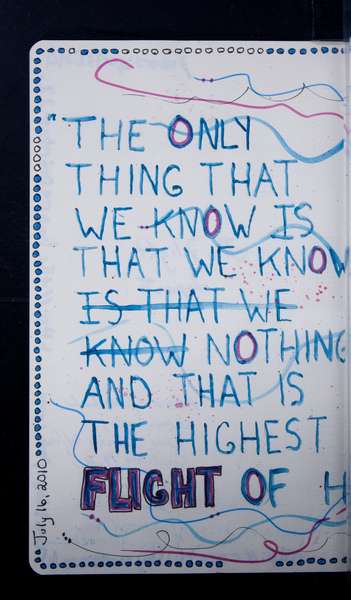 "THE ONLY
THING THAT
WE KNOW IS
THAT WE KNOW
IS THAT WE
KNOW NOTHING
AND THAT IS
THE HIGHEST
FLIGHT OF H
July 16, 2010